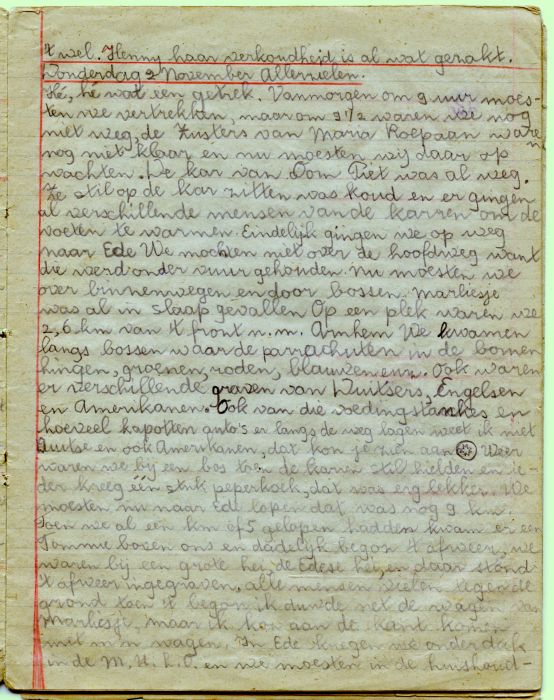 't wel. Henny haar verkoudheid is al wat gezakt.
Donderdag 2 November Allerzielen.
Hé, hé wat een getrek. Vanmorgen om 9 uur moes-
ten we vertrekken, maar om 9 1/2 waren we nog
niet weg, de Zusters van Maria Roepaan waren
nog niet klaar en nu moesten wij daar op
wachten. De kar van Oom Piet was al weg.
Zo stil op de kar zitten was koud en er gingen
al verschillende mensen van de karren om de
voeten te warmen. Eindelijk gingen we op weg
naar Ede We mochten niet over de hoofdweg want
die werd onder vuur gehouden. Nu moesten we
over binnenwegen en door bossen. Marliesje
was al in slaap gevallen Op een plek waren we
2,6 km van 't front n.m. Arnhem We kwamen
langs bossen waar de parachuten in de bomen
hingen, groenen, roden, blauwen enz. Ook waren
er verschillende graven van Duitsers, Engelsen
en Amerikanen. Ook van die voedingstanks en
hoeveel kapotten auto's er langs de weg lagen weet ik niet
Duitse en ook Amerikanen, dat kon je zien aan Weer
waren we bij een bos toen de karren stil hielden en ie-
der kreeg één stuk peperkoek, dat was erg lekker. We
moesten nu naar Ede lopen dat was nog 9 km.
Toen we al een km of 5 gelopen hadden kwam er een
Tommie boven ons en dadelijk begon 't afweer, we
waren bij een grote hei, de Edese hei, en daar stond
't afweer ingegraven, alle mensen vielen tegen de
grond toen 't begon, ik duwde net de wagen van
Marliesje, maar ik kon aan de kant komen
met m'n wagen. In Ede kregen we onderdak
in de M.U.L.O. en we moesten in de huishoud-